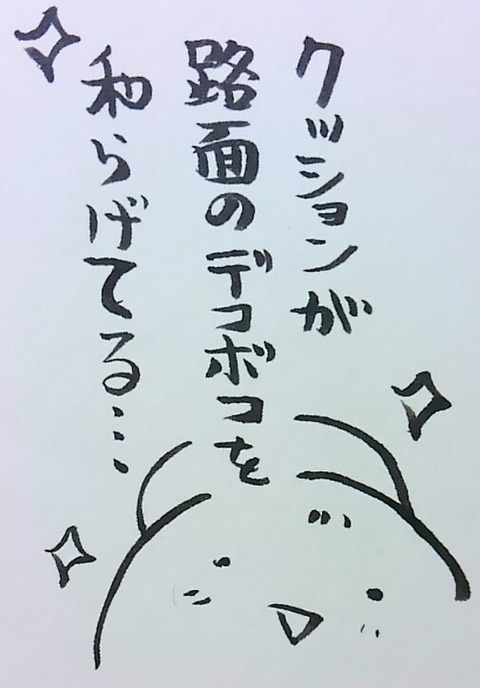 クッションが
路面のデコボコを
和らげてる…